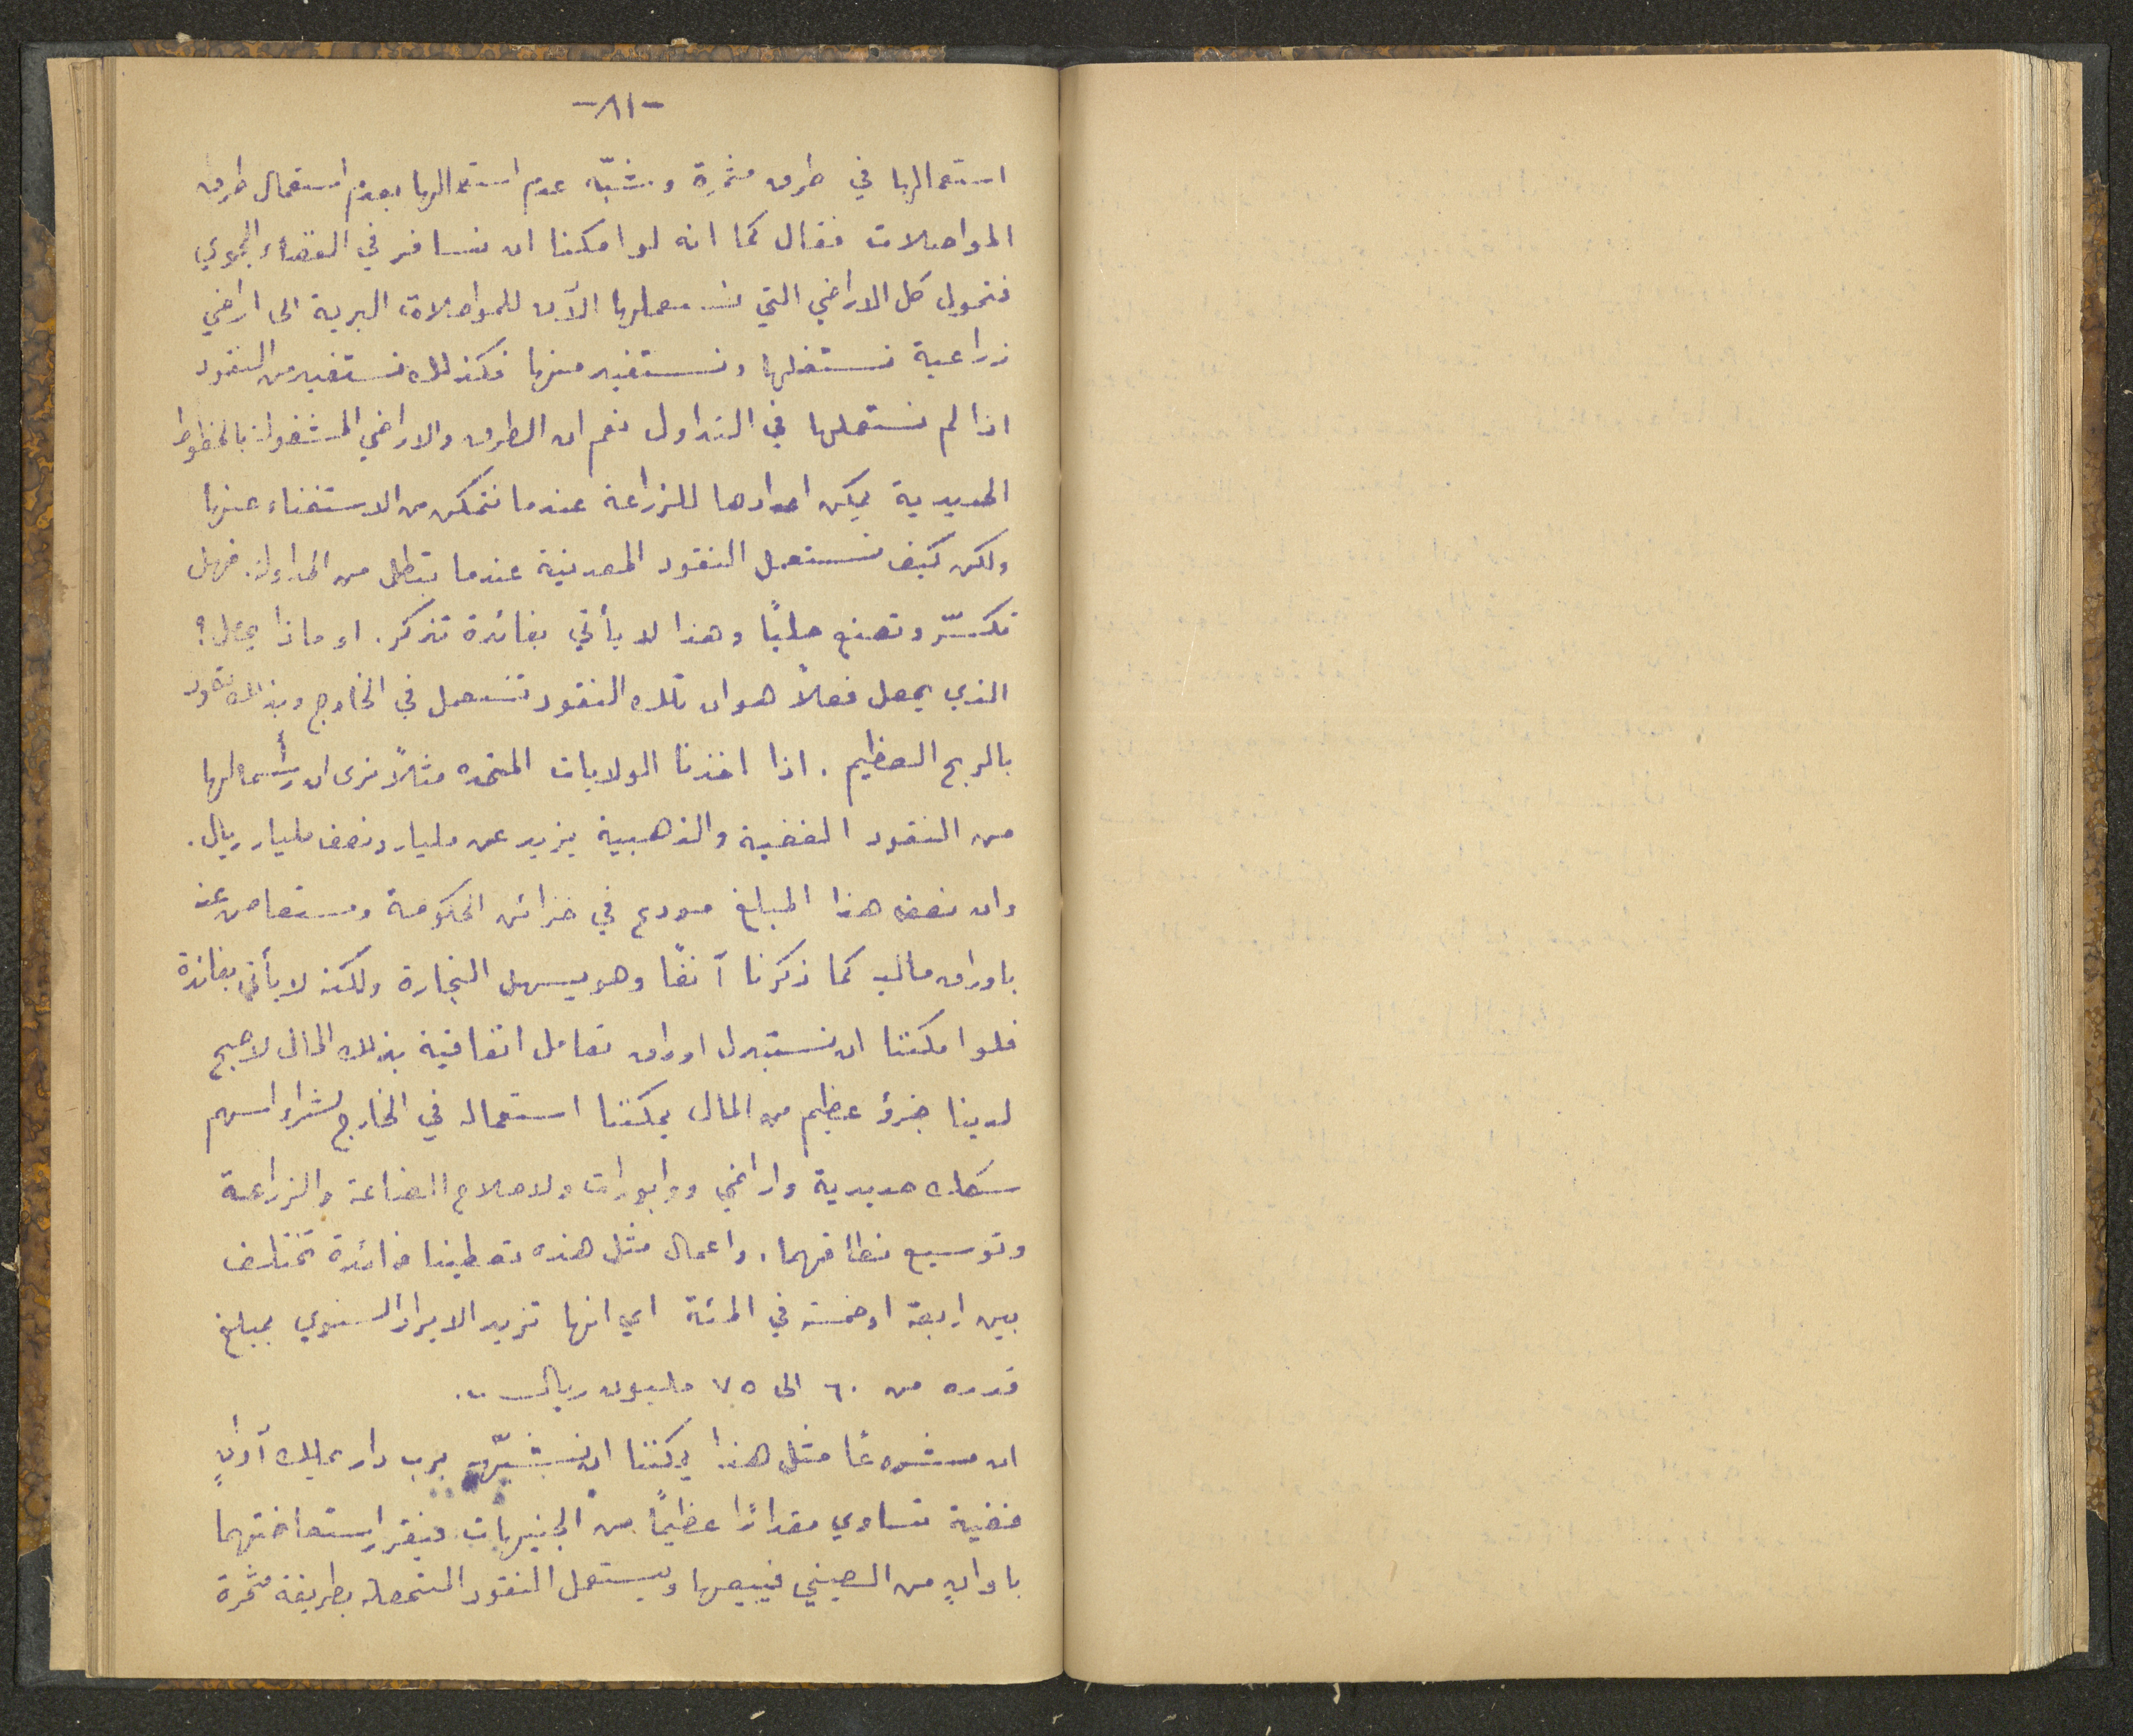 -٨١-
استعمالها في طرق مثمرة وشبّه عدم استعمالها بعدم استعمال طرق
المواصلات فقال كما انه لو امكننا ان نسافر في الفضاء الجوي
فنحول كل الاراضي التي نستعملها الآن للمواصلات البرية الى اراضي
زراعية نستغلها ونستفيد منها فكذلك نستفيد من النقود
اذا لم نستعملها في التداول نعم ان الطرق والاراضي المشغولة بالخطوط
الحديدية يمكن اعدادها للزراعة عندما نتمكن من الاستغناء عنها
ولكن كيف نستعمل النقود المعدنية عندما تبطل من المداولة. فهل
تكسّر وتصنع حليًا وهذا لا يأتي بفائدة تذكر. او ماذا يعمل؟
الذي يعمل فعلاً هو ان تلك النقود تستعمل في الخارج وبذلك تعود
بالربح العظيم. اذا اخذنا الولايات المتحده مثلاً نرى ان رأسمالها
من النقود الفضية والذهبية يزيد عن مليار ونصف مليار ريال.
وان نصف هذا المبلغ مودع في خزائن الحكومة ومستعاض عنه
باوراق مالية كما ذكرنا آنفًا وهو يسهل التجارة ولكنه لا يأتي بفائدة
فلو امكننا ان نستبدل اوراق تعامل اتفاقية بذلك المال لاصبح
لدينا جزؤ عظيم من المال يمكننا استعماله في الخارج لشراء اسهم
سكك حديدية واراضي ووابورات ولاصلاح الصناعة والزراعة
وتوسيع نطاقهما. واعمال مثل هذه تعطينا فائدة تختلف
بين اربعة او خمسة في المئة اي انها تزيد الايراد السنوي بمبلغ
قدره من ٦٠ الى ٧٥ مليون ريال..
ان مشروعًا مثل هذا يمكننا ان نشبّهه برب دار يملك آوانٍ
فضية تساوي مقدارًا عظيمًا من الجنيهات فيقرر استعاضتهما
باوانٍ من الصيني فيبيعها ويستعمل النقود المتحصله بطريقة مثمرة